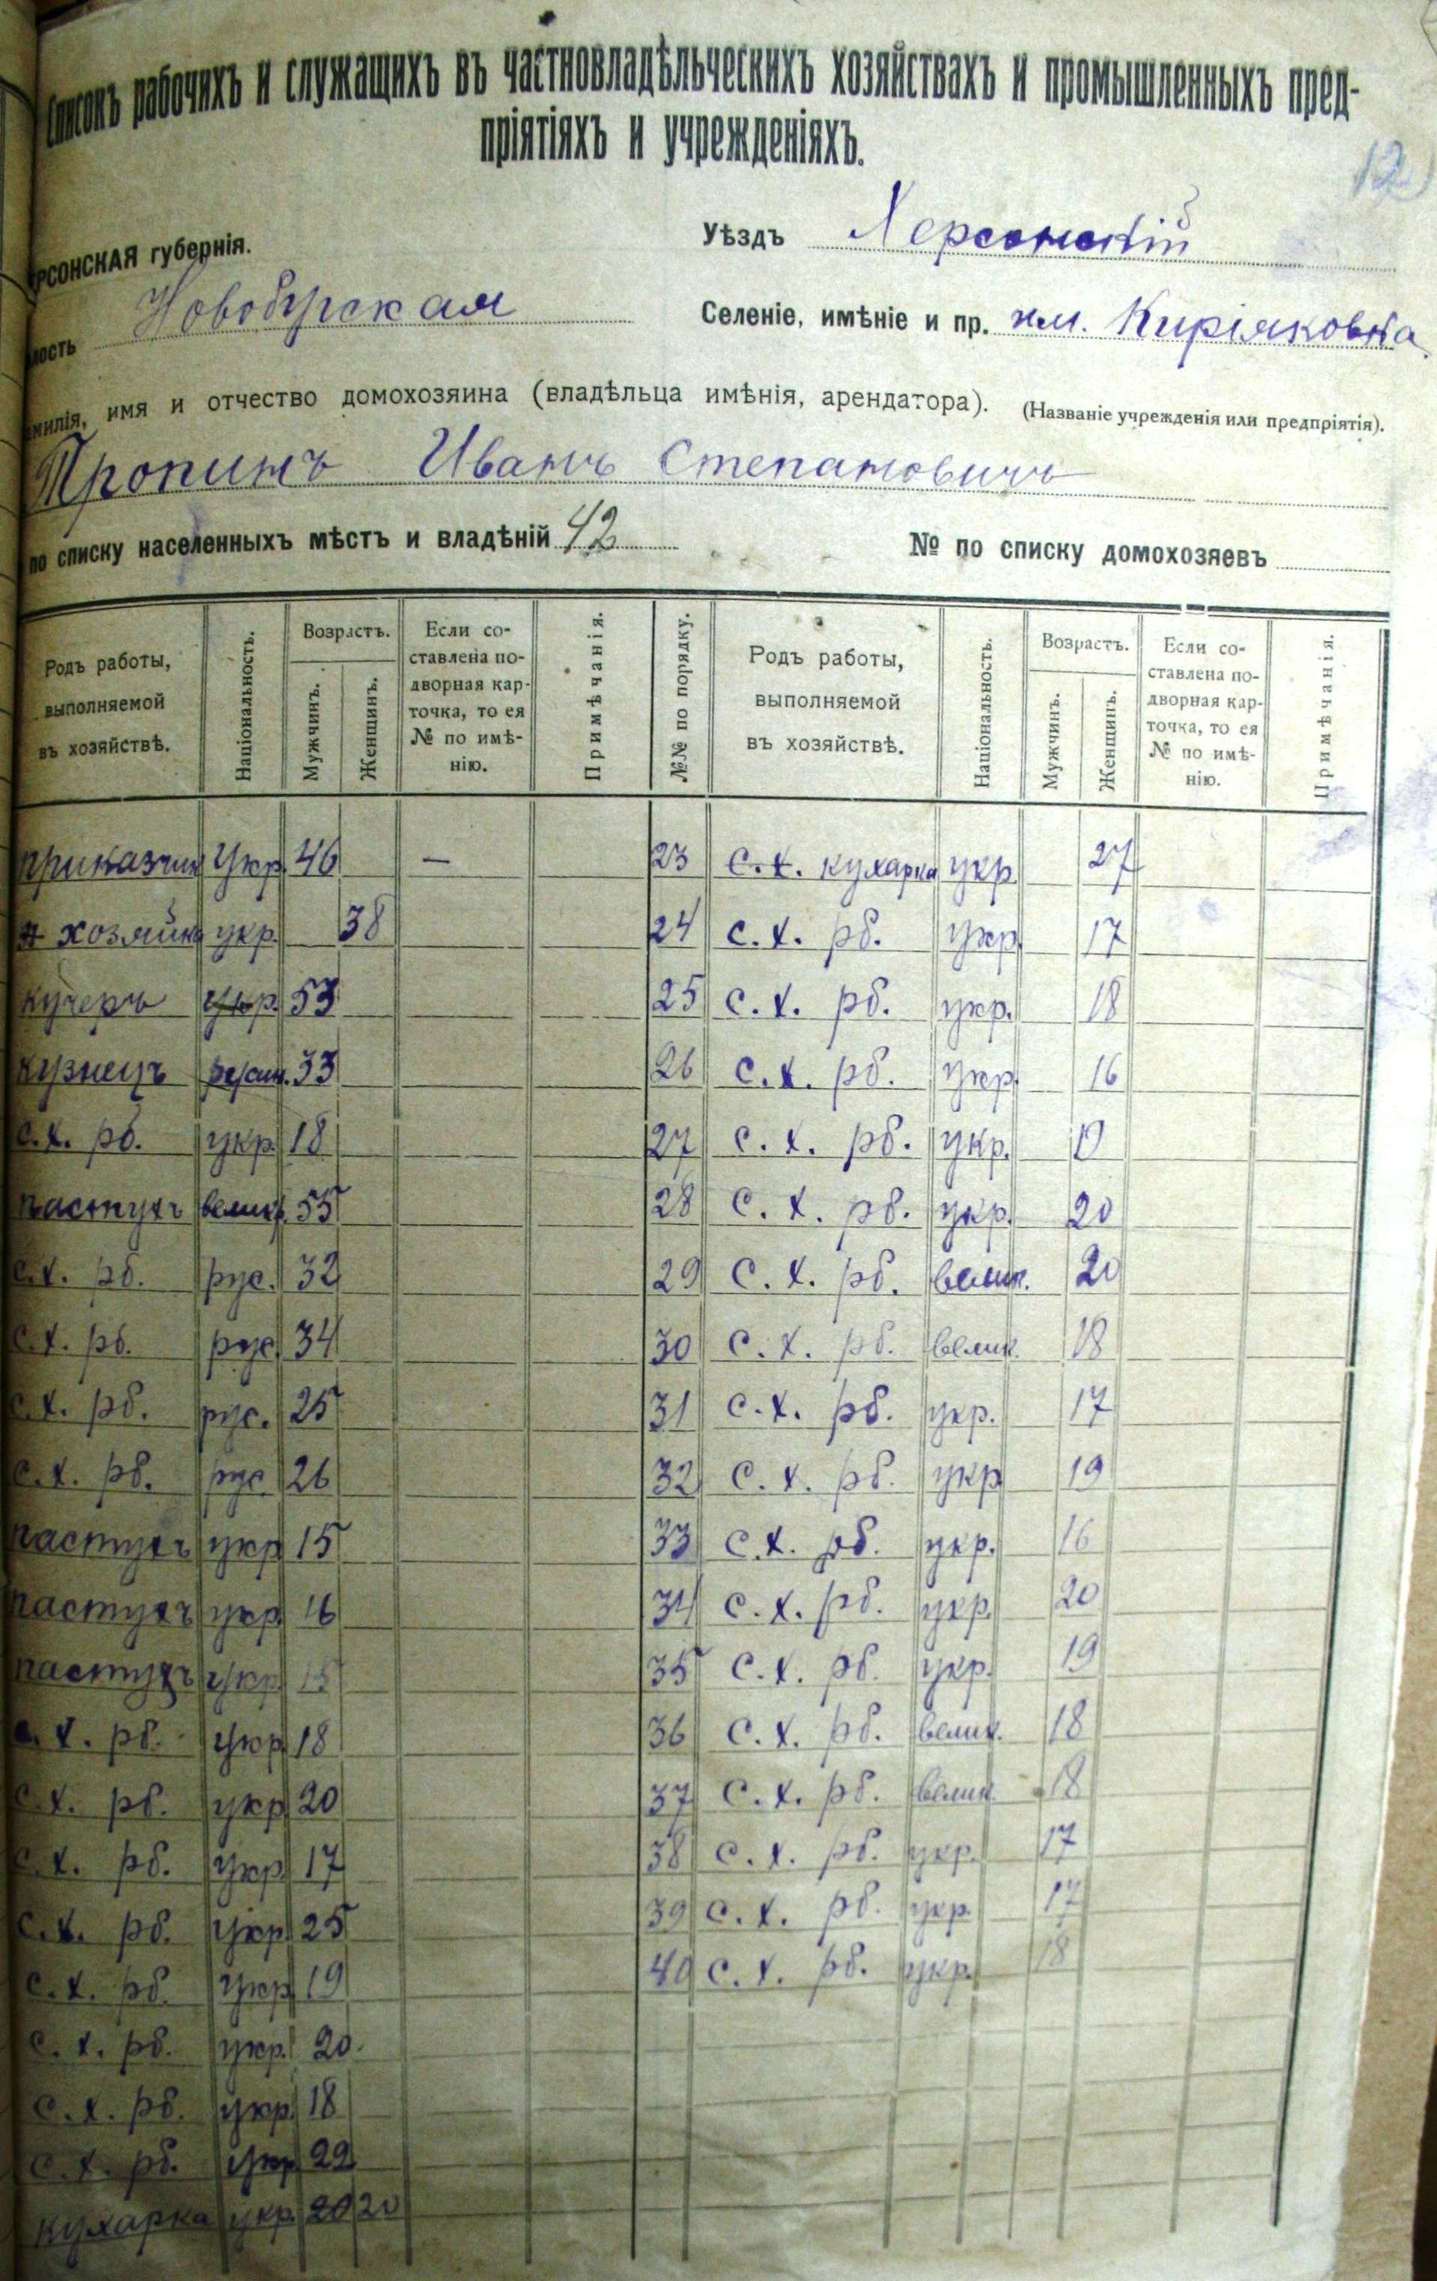 Списокъ рабочихъ и служащихъ въ частновладѣльческихъ хозяйствахъ и промышленныхъ пред-
пріятіяхъ и учрежденіяхъ.
12
РСОНСКАЯ губернія.
Уѣздъ Херсонскій
лость Новобугская
Селеніе, имѣніе и пр. им. Киріяковка
милія, имя и отчество домохозяина (владѣльца имѣнія, арендатора). (Названіе учрежденія или предпріятія).
Тропинъ Иванъ Степановичъ
по списку населенныхъ мѣстъ и владѣній 42
№ по списку домохозяевъ
Родъ работы, выполняемой въ хозяйствѣ.
Національность.
Возрастъ.
Мужчинъ.
Женщинъ.
Если составлена подворная карточка, то ея № по имѣнію.
Примѣчанія.
№№ по порядку.
Родъ работы, выполняемой въ хозяйствѣ.
Національность.
Возрастъ.
Мужчинъ.
Женщинъ.
Если составлена подворная карточка, то ея № по имѣнію.
Примѣчанія.
приказчик укр. 46 — 23 с.х. кухарка укр. 27
хозяйка укр. 38 24 с.х. рб. укр. 17
кучеръ укр. 53 25 с.х. рб. укр. 18
кузнецъ 33 26 с.х. рб. укр. 16
с.х. рб. укр. 18 27 с.х. рб. укр.
пастухъ велик. 55 28 с.х. рб. укр. 20
с.х. рб. рус. 32 29 с.х. рб. велик. 20
с.х. рб. рус. 34 30 с.х. рб. велик. 18
с.х. рб. рус. 25 31 с.х. рб. укр. 17
с.х. рб. рус. 26 32 с.х. рб. укр. 19
пастухъ укр. 15 33 с.х. рб. укр. 16
пастухъ укр. 16 34 с.х. рб. укр. 20
пастухъ укр. 15 35 с.х. рб. укр. 19
с.х. рб. укр. 18 36 с.х. рб. велик. 18
с.х. рб. укр. 20 37 с.х. рб. велик. 18
с.х. рб. укр. 17 38 с.х. рб. укр. 17
с.х. рб. укр. 25 39 с.х. рб. укр. 17
с.х. рб. укр. 19 40 с.х. рб. укр. 18
с.х. рб. укр. 20
с.х. рб. укр. 18
с.х. рб. укр. 22
кухарка укр. 20 20